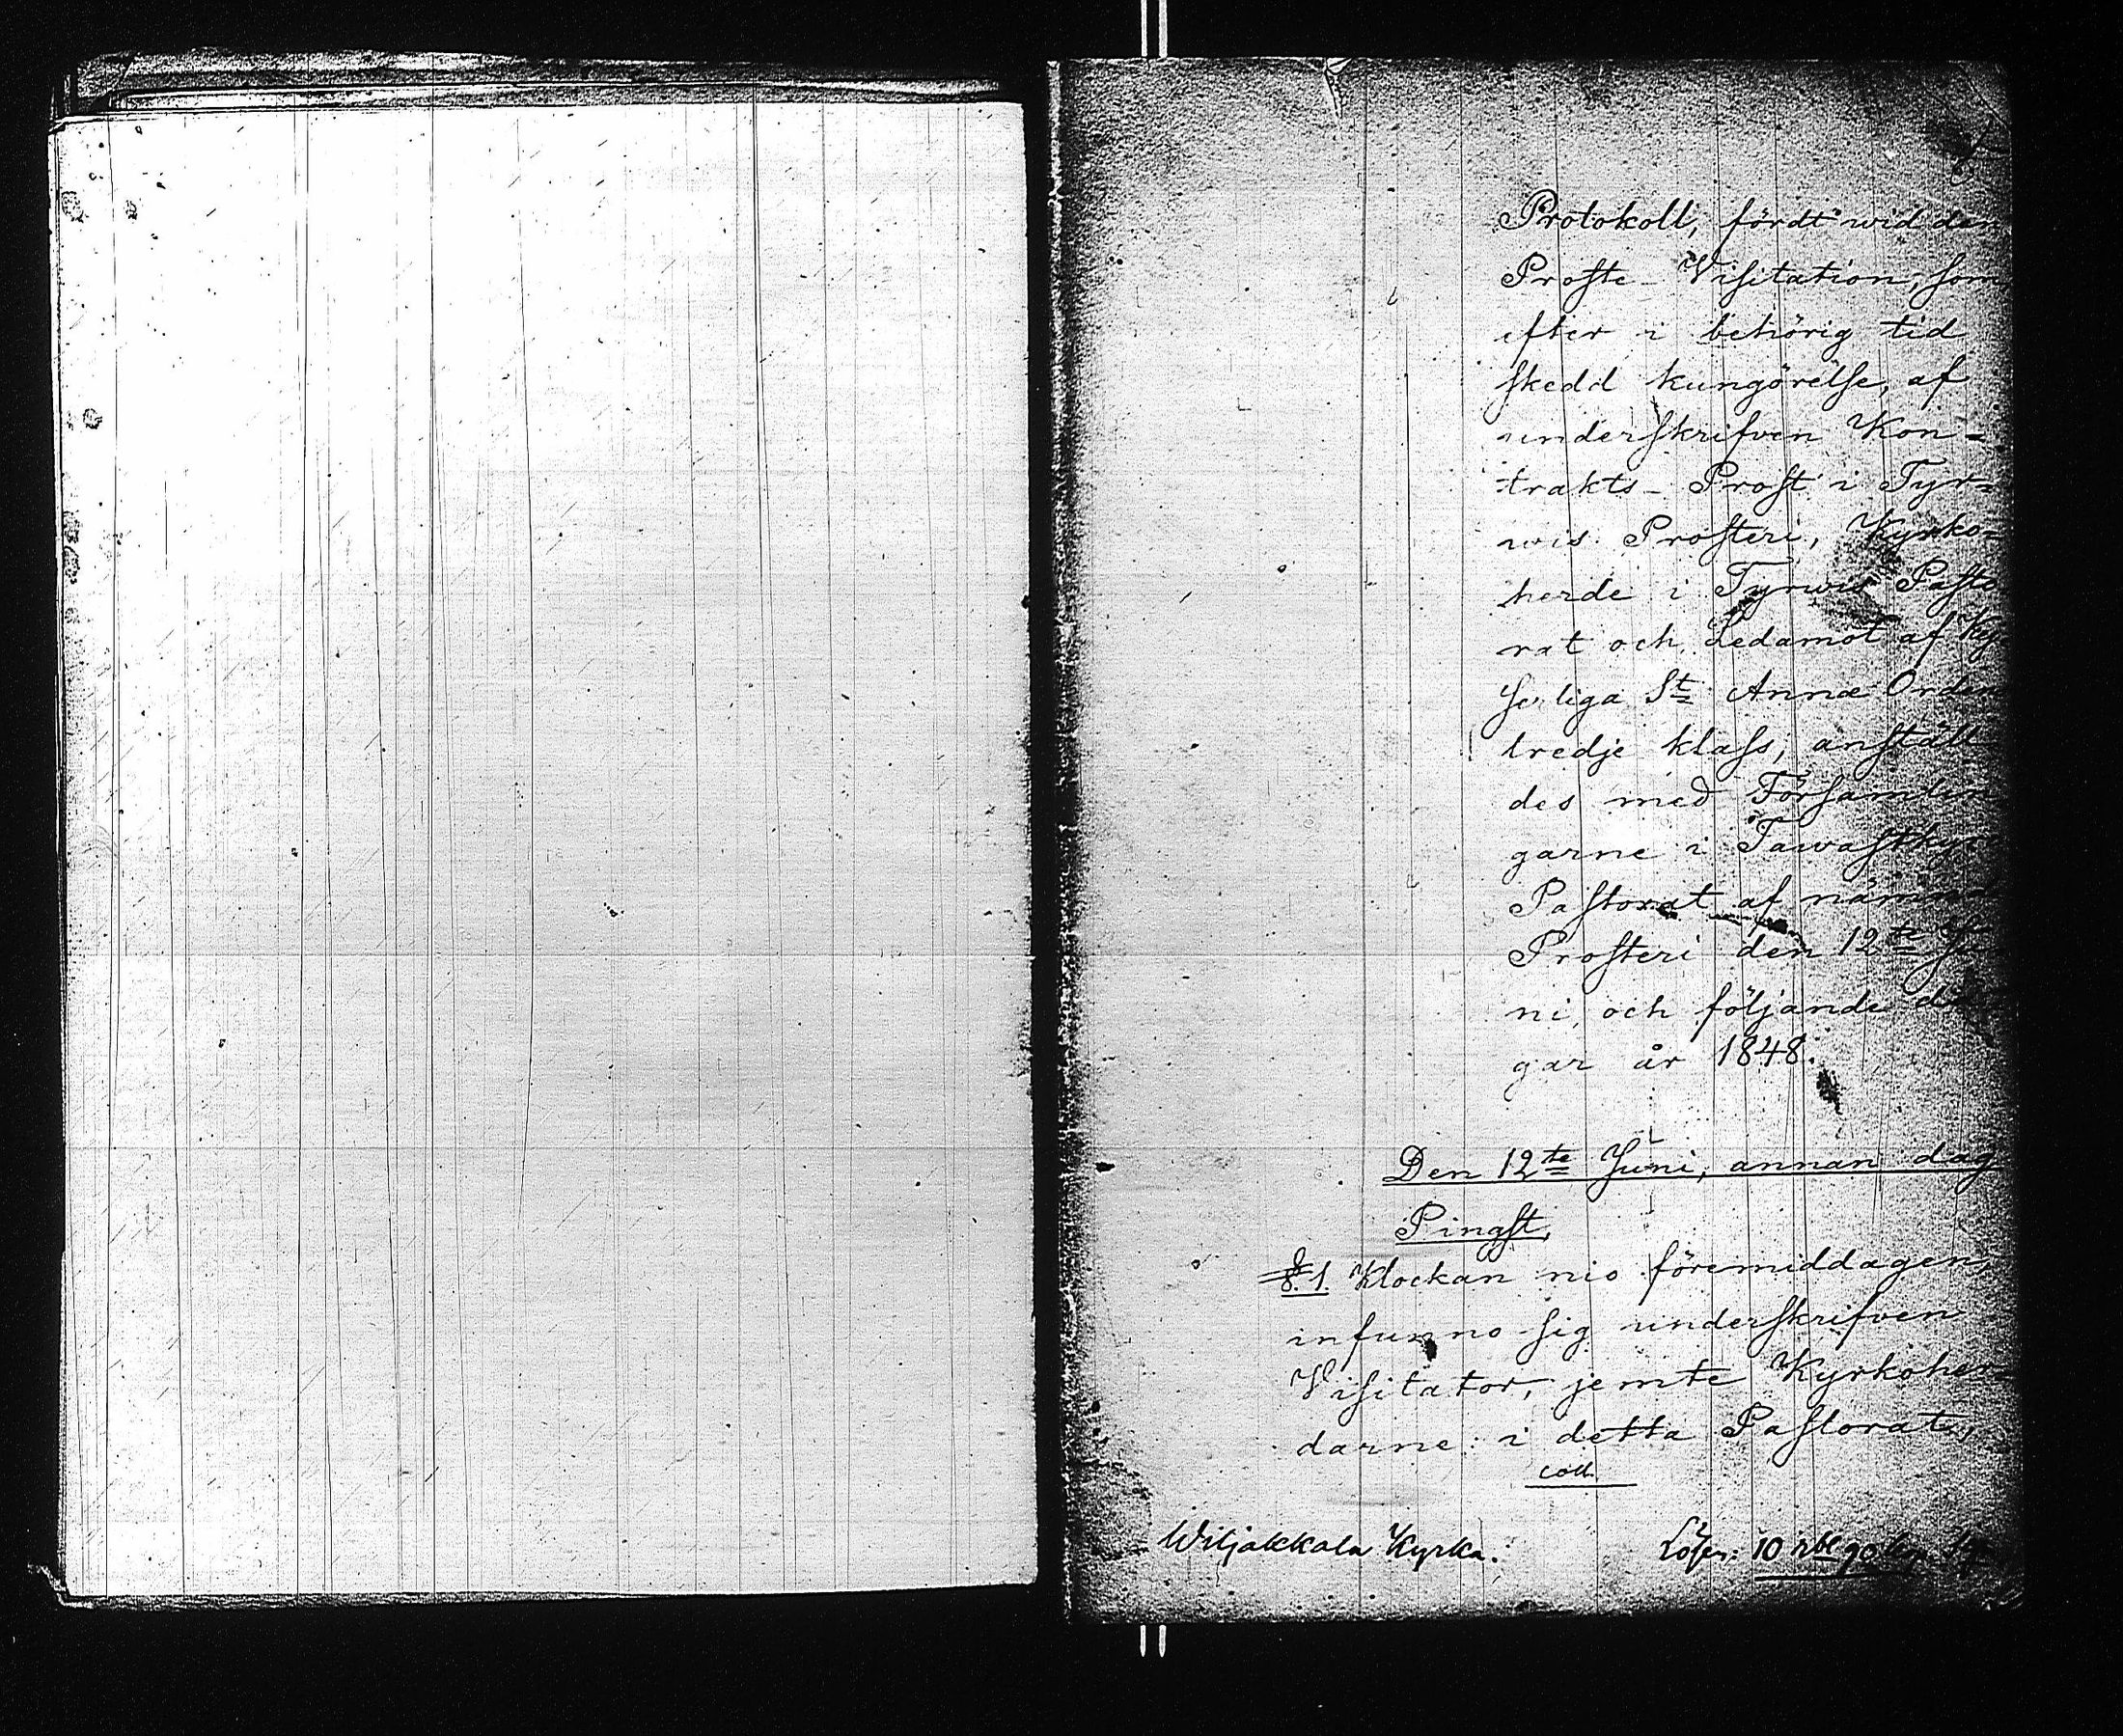 Protokoll, fördt wid den
Proste-Visitation, som
efter i behörig tid
skedd kungörelse, af
underskrifven Kon-
trakts-Prost i Tyr-
wis Prosteri, Kyrko-
herde i Tyrwis Pasto
rat och Ledamot af Kej
serliga St Annæ Orden
tredje klass, anstäl
des med Församlin
garne i Tawastkyr
Pastorat af nämn
Prosteri den 12te Ju
ni, och följande da
gar år 1848.
Den 12te Juni, annan dag
Pingst,
§. 1. Klockan nio föremiddagen,
infunno sig underskrifven
Visitator, jemte Kyrkoher
darne i detta Pastorat,
coll.
Wiljakkala Kyrka.
Lösen: 10 rbl 90 kop.